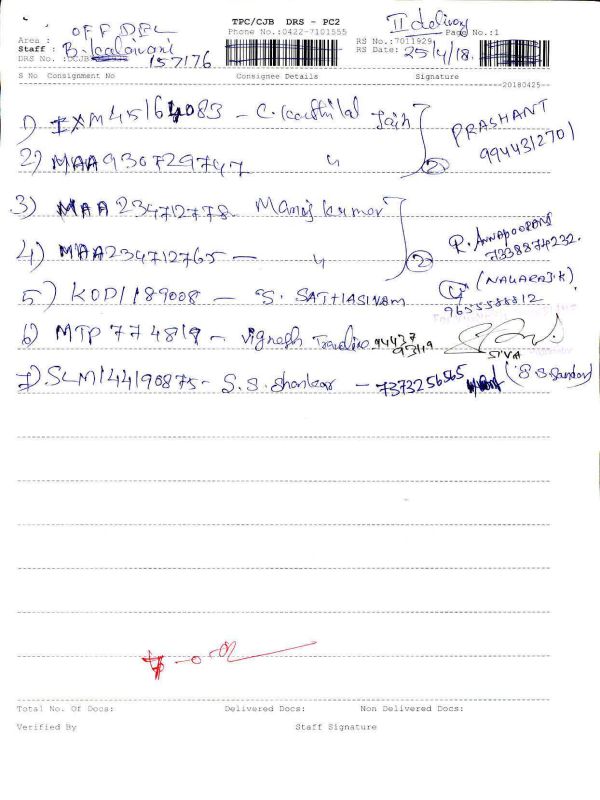 OFF DEL
TPC/CJB DRS - PC2
II delivery
Area :
Phone No.:0422-7101555
Page No.:1
Staff : B. Kalaivani
RS No.:7011929
DRS No. :
157176
RS Date: 25/4/18.
S No Consignment No Consignee Details Signature
20180425--
1) IXM45164083 - C. Kanthilal Jain
PRASHANT
9944312701
2) MAA930729747 〃 (2)
3) MAA234712778 - Manoj kumar
R. ANNAPOORANI
7338874232.
4) MAA234712765 - 〃 (2)
(NAGARAJ.K)
9655588812
5) KOD1189008 - S. SATHIASIVAM
6) MTP774819 - Vignesh 94437
93119
SIVA
7) SLM144190875 - S.S. Shankar - 7373256565
Total No. Of Docs: Delivered Docs: Non Delivered Docs:
Verified By Staff Signature